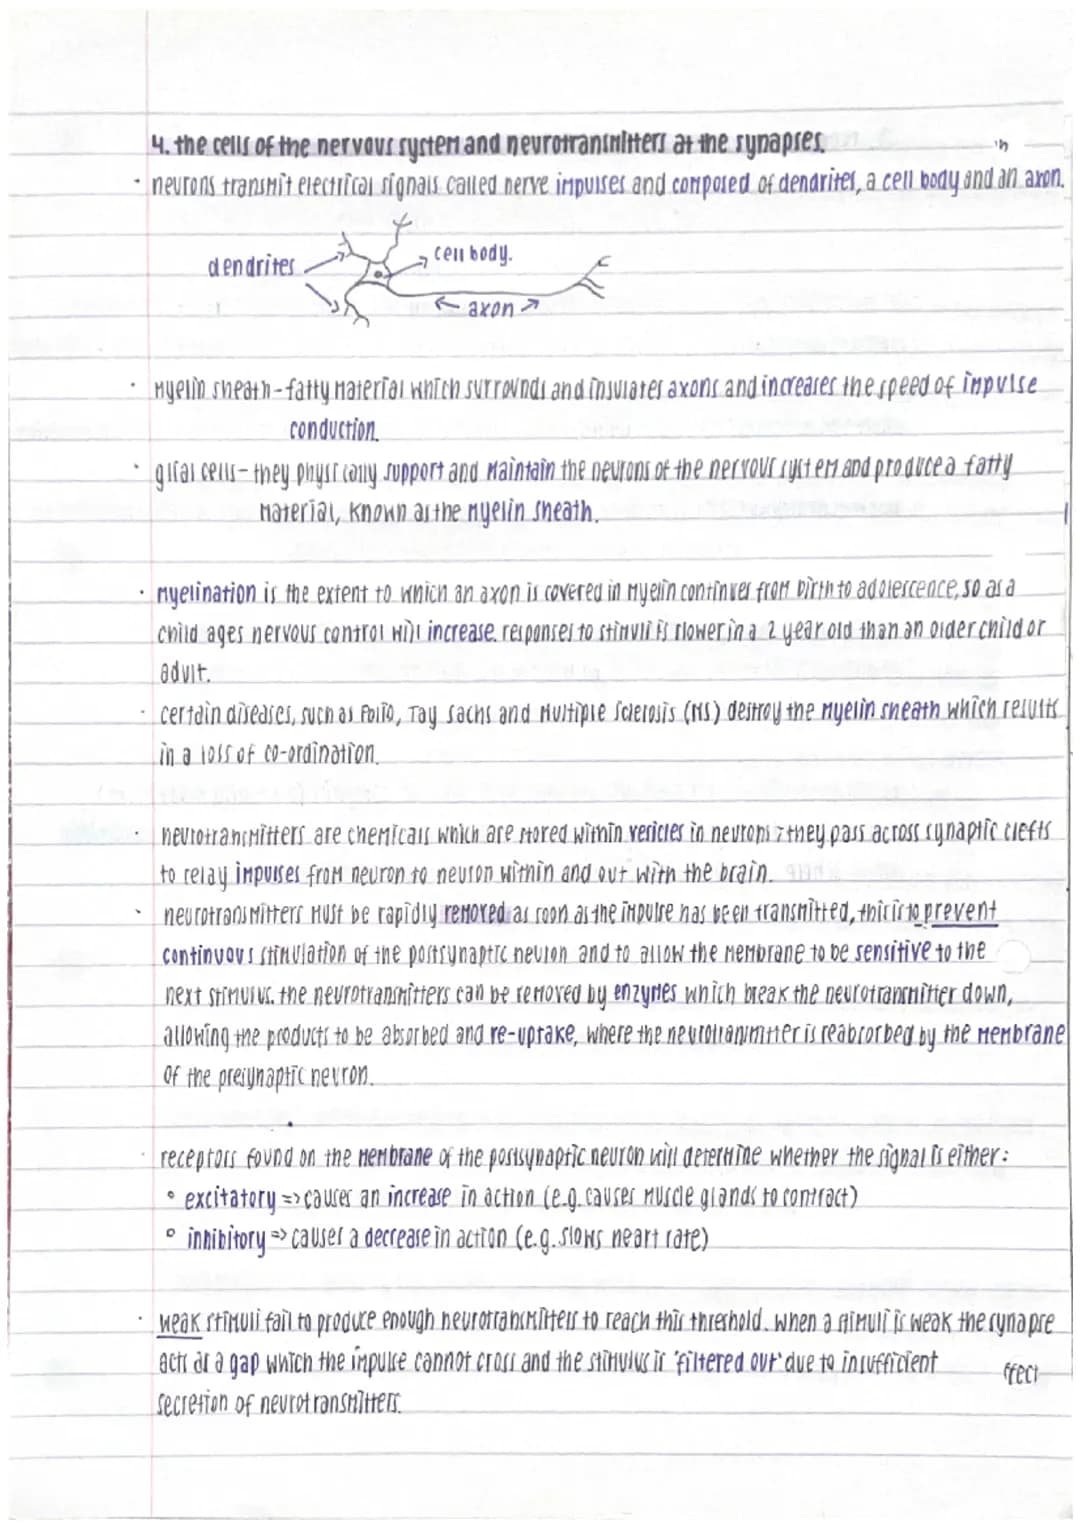 4. the cells of the nervous system and neurotransmitters at the synapses.
· neurons transmit electrical signals called nerve impulses and composed of dendarites, a cell body and an axon.
dendrites
cell body.
← axon →
· Myelin sheath - fatty material which surrounds and insulates axons and increases the speed of impulse
conduction.
· glial cells - they physically support and maintain the neurons of the nervous system and produce a fatty
material, known as the myelin sheath.
· myelination is the extent to which an axon is covered in myelin continues from birth to adolescence, so as a
child ages nervous control will increase. responses to stimuli is slower in a 2 year old than an older child or
adult.
· certain diseases, such as Polio, Tay Sachs and Multiple Sclerosis (MS) destroy the myelin sheath which results
in a loss of co-ordination.
· neurotransmitters are chemicals which are stored within vesicles in neurons they pass across synaptic clefts
to relay impulses from neuron to neuron within and out with the brain.
· neurotransmitters must be rapidly removed as soon as the impulse has been transmitted, this is to prevent
continuous stimulation of the postsynaptic neuron and to allow the membrane to be sensitive to the
next stimulus. the neurotransmitters can be removed by enzymes which break the neurotransmitter down,
allowing the products to be absorbed and re-uptake, where the neurotransmitter is reabsorbed by the membrane
of the presynaptic neuron.
· receptors found on the membrane of the postsynaptic neuron will determine whether the signal is either:
° excitatory => causes an increase in action (e.g. causes muscle glands to contract)
° inhibitory => causes a decrease in action (e.g. slows heart rate)
· weak stimuli fail to produce enough neurotransmitters to reach this threshold. when a stimuli is weak the synapse
acts as a gap which the impulse cannot cross and the stimulus is 'filtered out' due to insufficient
secretion of neurotransmitters.